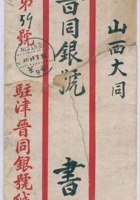 山西大同
晋同銀號
書
第59號
駐津晋同銀號